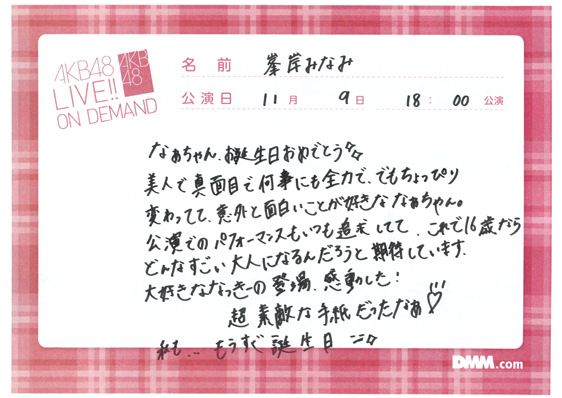 AKB48
LIVE!!
ON DEMAND
AKB
48
名 前 峯岸みなみ
公演日 11月 9日 18:00 公演
なぁちゃん、お誕生日おめでとう
美人で真面目で何事にも全力で、でもちょっぴり
変わってて、意外と面白いことが好きななぁちゃん。
公演でのパフォーマンスもいつも追求してて、これで16歳なら
どんなすごい大人になるんだろうと期待しています。
大好きななっきーの登場、感動した!
超素敵な手紙だったなぁ♡
私も... もうすぐ誕生日
DMM.com